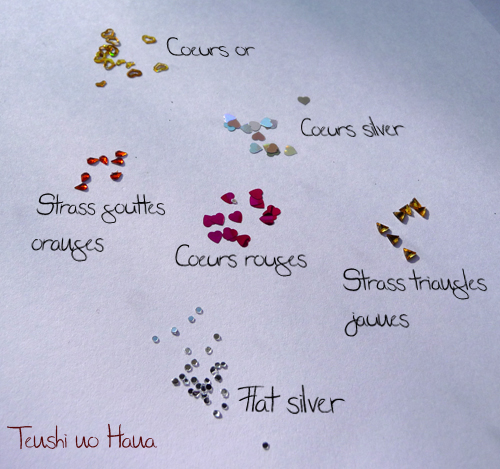 Coeurs or
Coeurs silver
Strass gouttes
oranges
Coeurs rouges
Strass triangles
jaunes
Flat silver
Tenshi no Hana